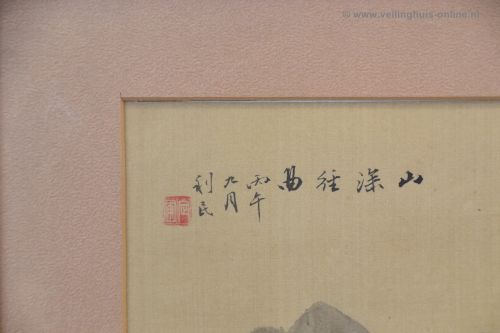 © www.veilinghuis-online.nl
山深径曲
丙午
九月
利民